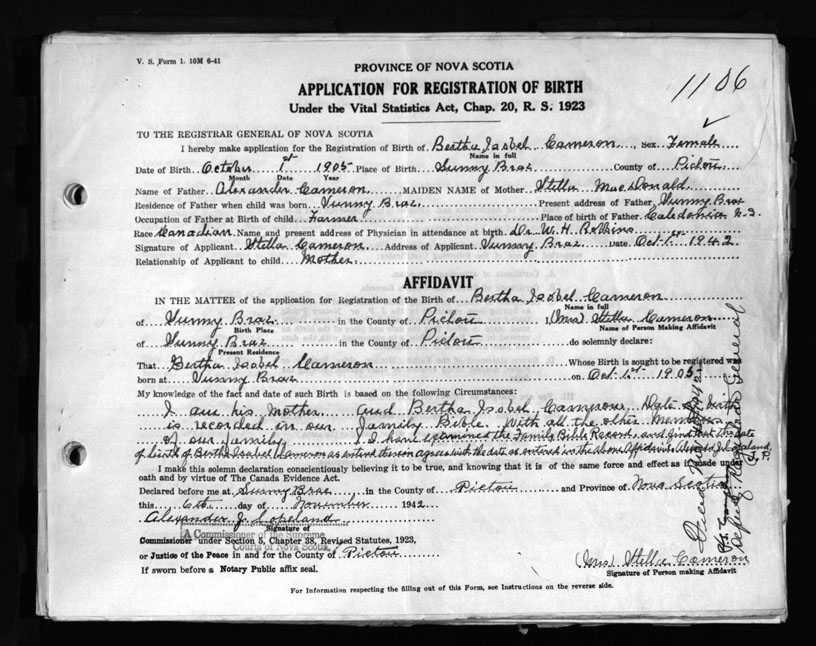 V. S. Form 1. 10M 6-41
PROVINCE OF NOVA SCOTIA
APPLICATION FOR REGISTRATION OF BIRTH
Under the Vital Statistics Act, Chap. 20, R. S. 1923
1106
TO THE REGISTRAR GENERAL OF NOVA SCOTIA
I hereby make application for the Registration of Birth of Bertha Isobel Cameron, Sex Female
Name in full
Date of Birth October 1st 1905 Place of Birth Sunny Brae County of Pictou
Month Date Year
Name of Father Alexander Cameron MAIDEN NAME of Mother Stella MacDonald
Residence of Father when child was born Sunny Brae Present address of Father, Sunny Brae
Occupation of Father at Birth of child Farmer Place of birth of Father Caledonia N.S.
Race Canadian Name and present address of Physician in attendance at birth Dr W. H. Robbins
Signature of Applicant Stella Cameron Address of Applicant Sunny Brae Date Oct. 1st 1942
Relationship of Applicant to child Mother
AFFIDAVIT
IN THE MATTER of the application for Registration of the Birth of Bertha Isobel Cameron
Name in full
of Sunny Brae in the County of Pictou I, (Mrs) Stella Cameron
Birth Place Name of Person Making Affidavit
of Sunny Brae in the County of Pictou do solemnly declare:
Present Residence
That Bertha Isobel Cameron Whose Birth is sought to be registered was
born at Sunny Brae on Oct. 1st 1905
My knowledge of the fact and date of such Birth is based on the following Circumstances:
I am his Mother and Bertha Isobel Cameron Date of birth
is recorded in our Family Bible. With all the other Members
of our family. I have examined the Family Bible Record, and find that the date
of birth of Bertha Isabel Cameron as entered therein agrees with the date as entered in the above Affidavit. Alexander J. Copeland,
I make this solemn declaration conscientiously believing it to be true, and knowing that it is of the same force and effect as if made under
oath and by virtue of The Canada Evidence Act.
Declared before me at Sunny Brae in the County of Pictou and Province of Nova Scotia
this 6th day of November 1942
Alexander J. Copeland
Signature of
A Commissioner of the Supreme
Commissioner under Section 5, Chapter 38, Revised Statutes, 1923,
Courts of Nova Scotia
or Justice of the Peace in and for the County of Pictou
(Mrs) Stella Cameron
Signature of Person making Affidavit
If sworn before a Notary Public affix seal.
For Information respecting the filling out of this Form, see Instructions on the reverse side.
Deputy Registrar General